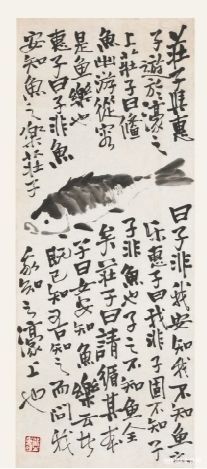 莊子與惠
子游於濠之
上莊子曰鯈
魚出游從容
是魚樂也
惠子曰子非魚
安知魚之樂莊子
曰子非我安知我不知魚之
樂惠子曰我非子固不知子
子非魚也子之不知魚全
矣莊子曰請循其本
子曰女安知魚樂云者
既已知吾知之而問我
我知之濠上也